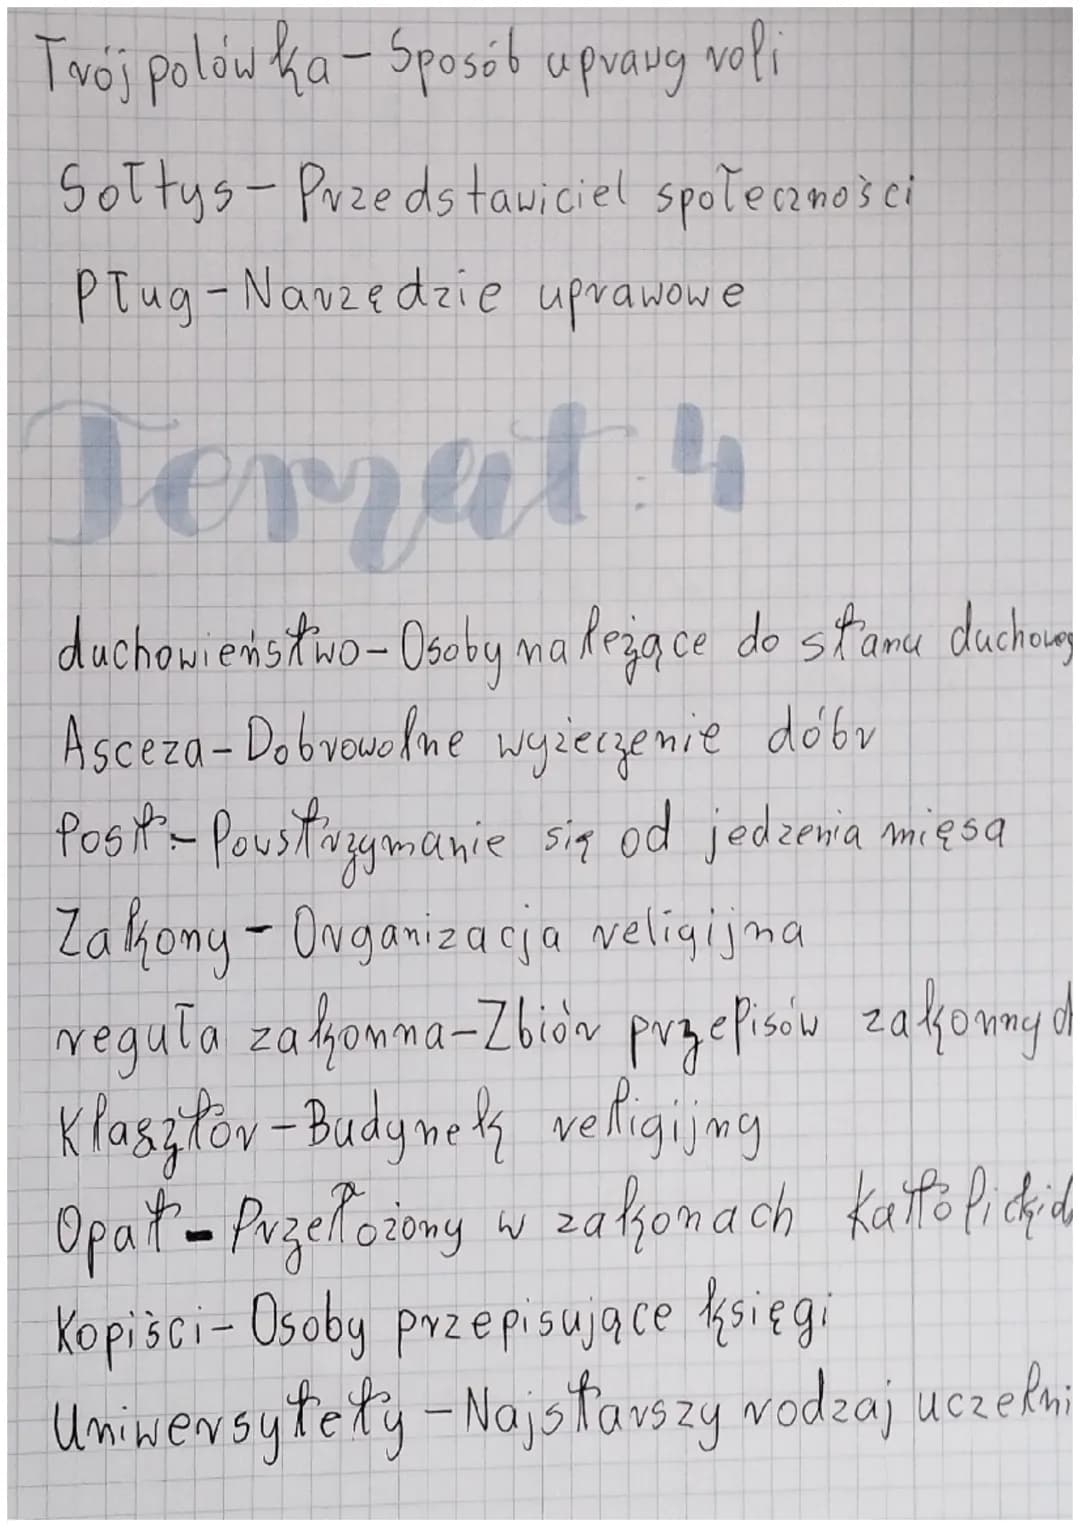 Trójpolówka - Sposób uprawy roli
Sołtys - Przedstawiciel społeczności
Pług - Narzędzie uprawowe
Temat: 4
duchowieństwo - Osoby należące do stanu duchoweg
Asceza - Dobrowolne wyżeczenie dóbr
Post - Powstrzymanie się od jedzenia mięsa
Zakony - Organizacja religijna
reguła zakonna - Zbiór przepisów zakonnych
Klasztór - Budynek religijny
Opat - Przełożony w zakonach Katolickich
Kopiści - Osoby przepisujące księgi
Uniwersytety - Najstarszy rodzaj uczelni